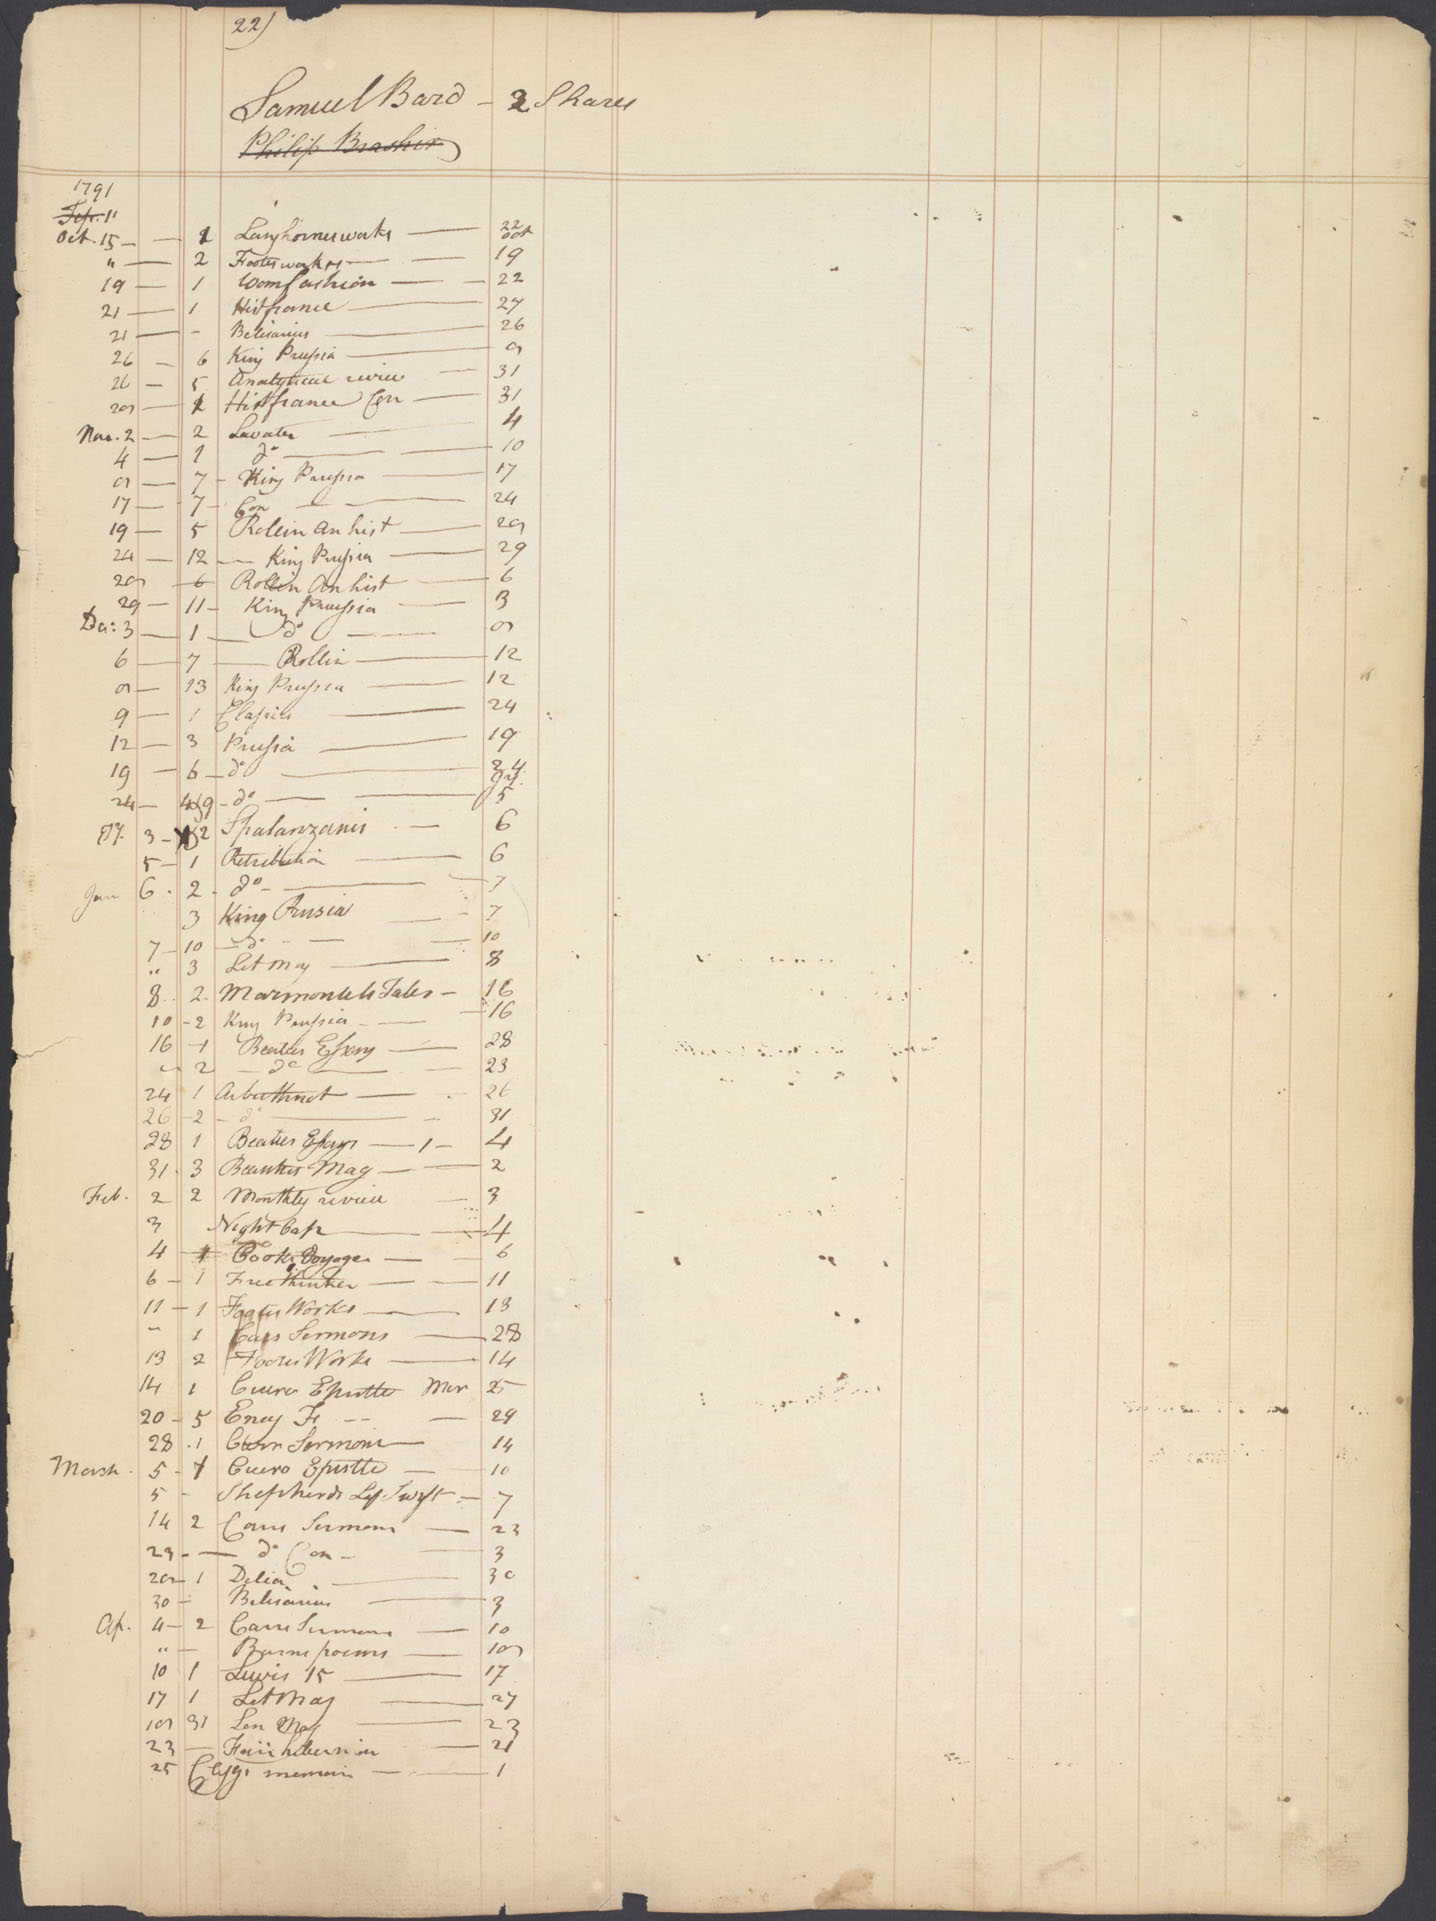 22)
Samuel Bard - 2 Shares
Philip Brashir
1791
Sep. 11
Oct. 15 - 1 Langhornes works - 22 Oct
" - 2 Footes works - 19
19 - 1 Wom fashion - 22
21 - 1 Hist france - 27
21 - - Belisarius - 26
26 - 6 King Prussia - 9
26 - 5 Analytical review - 31
29 - 1 Hist france Con - 31
Nov. 2 - 2 Lavater - 4
4 - 1 do - 10
9 - 7 - King Prussia - 17
17 - 7 - Con - 24
19 - 5 Rollin an hist - 29
24 - 12 - King Prussia - 29
29 - 6 Rollin An hist - 6
29 - 11 - King Prussia - 3
Dec: 3 - 1 - do - 9
6 - 7 - Rollin - 12
9 - 13 King Prussia - 12
9 - 1 Classics - 24
12 - 3 Prussia - 19
19 - 6 - do - 24
24 - 4&9 - do - Jy. 5
Jy. 3 - 2 Spalanzanis - 6
5 - 1 Retribution - 6
Jan 6 - 2 - do - 7
3 King Prusia - 7
7 - 10 - do - 10
" 3 Let Mag - 8
8 - 2 - Marmontels Tales - 16
10 - 2 King Prussia - 16
16 - 1 Beaties Essay - 28
" 2 - do - 23
24 1 Arbuthnot - 26
26 - 2 - do - 31
28 1 Beaties Essays - 1 - 4
31 - 3 Mag - 2
Feb. 2 2 Monthly review - 3
3 Night Cap - 4
4 - 1 Cooks Voyages - 6
6 - 1 Free thinker - 11
11 - 1 Footes Works - 13
" 1 Cars Sermons - 28
13 2 Footes Works - 14
14 1 Cicero Epistles Mar 25
20 - 5 Ency Fr - 29
28 - 1 Carr Sermons - 14
Marsh - 5 - 1 Cicero Epistle - 10
5 - Shepherds Lef. Swift - 7
14 2 Carrs Sermons - 23
23 - - do Con - 3
29 - 1 Delia - 30
30 - Belisarius - 3
Ap. 4 - 2 Carrs Sermons - 10
" - Burns poems - 19
10 1 Lewis 15 - 17
17 1 Let Mag - 27
19 31 Lon Mag - 23
23 - Fair hibernian - 21
25 Cleggs memoirs - 1